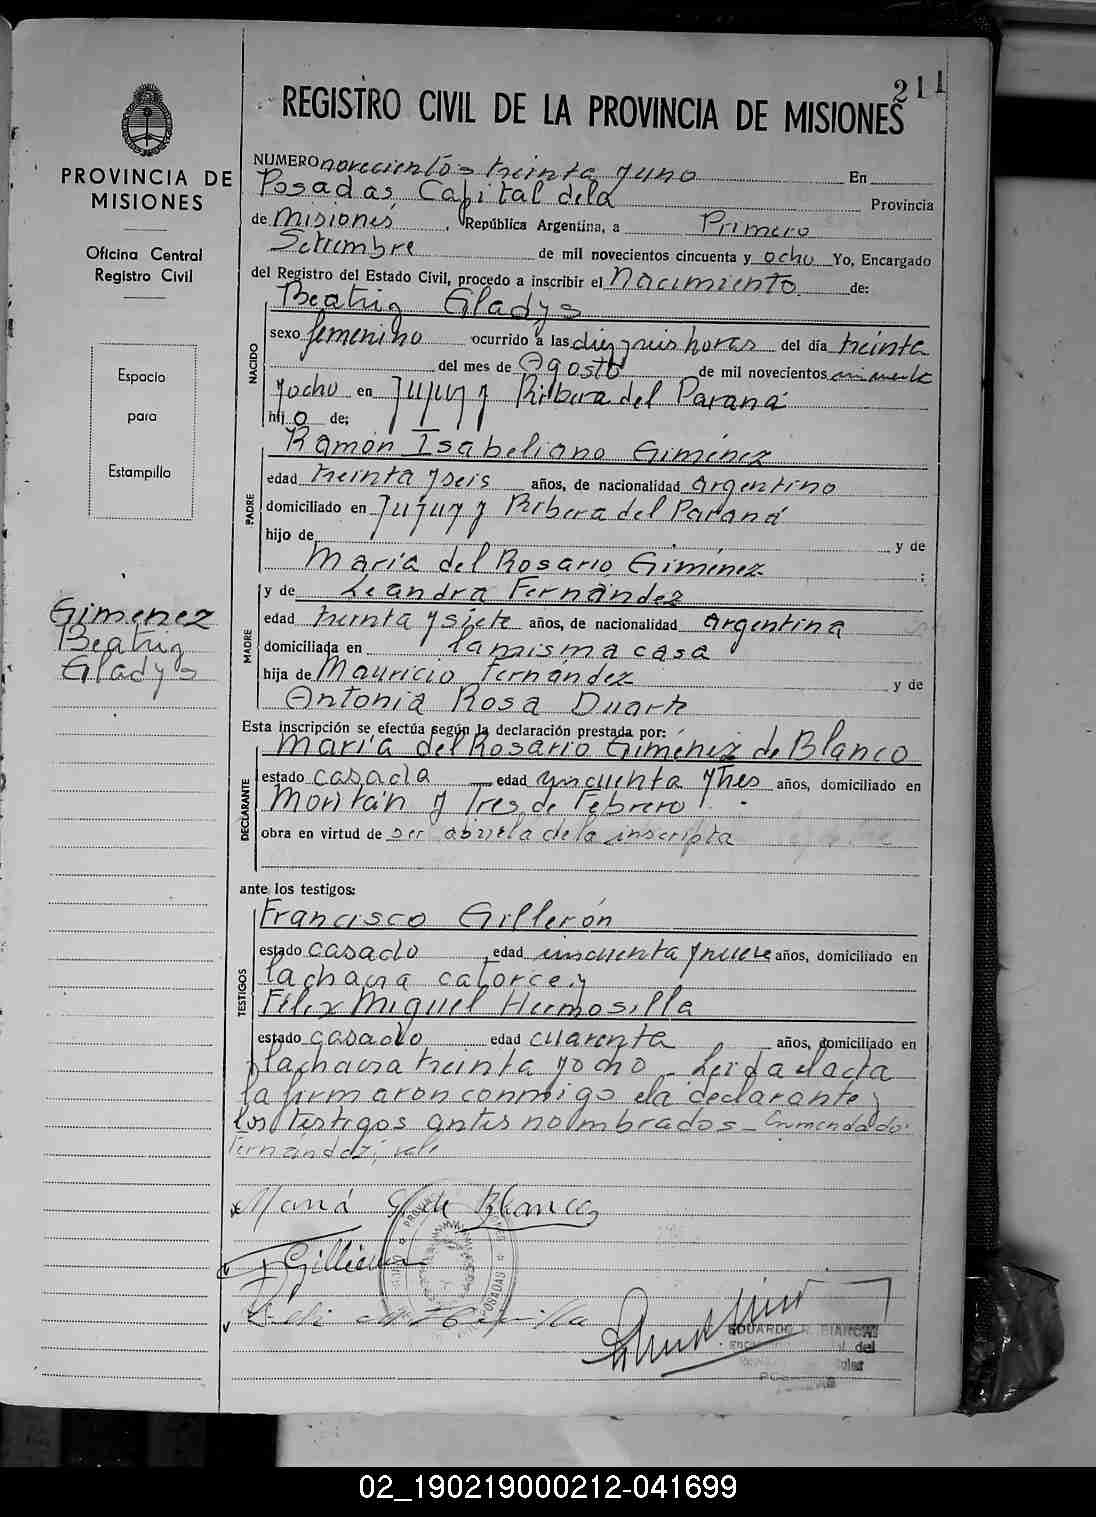 211
REGISTRO CIVIL DE LA PROVINCIA DE MISIONES
PROVINCIA DE
MISIONES
Oficina Central
Registro Civil
Espacio
para
Estampilla
Gimenez
Beatriz
Gladys
NUMERO novecientos treinta y uno En
Posadas, Capital de la Provincia
de Misiones, República Argentina, a Primero
Setiembre de mil novecientos cincuenta y ocho Yo, Encargado
del Registro del Estado Civil, procedo a inscribir el Nacimiento de:
Beatriz Gladys
NACIDO
sexo femenino ocurrido a las diez y seis horas del día treinta
del mes de Agosto de mil novecientos cincuenta
y ocho en Jujuy y Ribera del Paraná
hijo de:
PADRE
Ramón Isabeliano Giménez
edad treinta y seis años, de nacionalidad argentino
domiciliado en Jujuy y Ribera del Paraná
hijo de y de
María del Rosario Giménez ;
MADRE
y de Leandra Fernández
edad treinta y siete años, de nacionalidad argentina
domiciliada en la misma casa
hija de Mauricio Fernández y de
Antonia Rosa Duarte
Esta inscripción se efectúa según la declaración prestada por:
DECLARANTE
María del Rosario Giménez de Blanco
estado casada edad cincuenta y tres años, domiciliado en
Moritán y Tres de Febrero
obra en virtud de ser abuela de la inscripta
ante los testigos:
TESTIGOS
Francisco Gillerón
estado casado edad cincuenta y nueve años, domiciliado en
la chacra catorce y
Félix Miguel Hermosilla
estado casado edad cuarenta años, domiciliado en
la chacra treinta y ocho - Leida el acta
la firmaron conmigo la declarante y
los testigos antes nombrados - Enmendado:
Fernández; vale
María G. de Blanco
Gillieron
POSADAS
EDUARDO R. BIANCHI
02_190219000212-041699